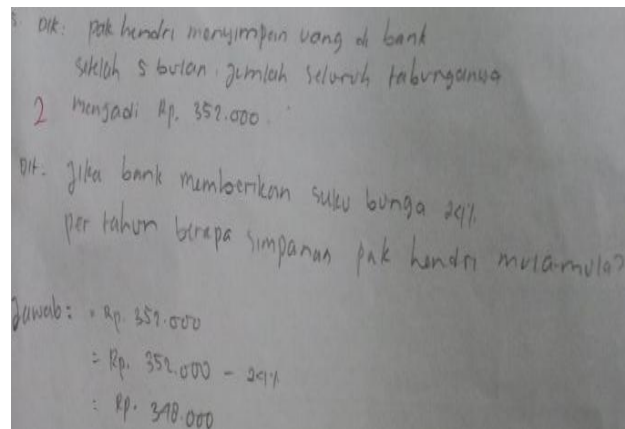 3. Dik: pak hendri menyimpan uang di bank
setelah 5 bulan. jumlah seluruh tabungannya
2 menjadi Rp. 352.000.
Dit. Jika bank memberikan suku bunga 24%
per tahun berapa simpanan pak hendri mula-mula?
Jawab: = Rp. 352.000
= Rp. 352.000 - 24%
= Rp. 348.000